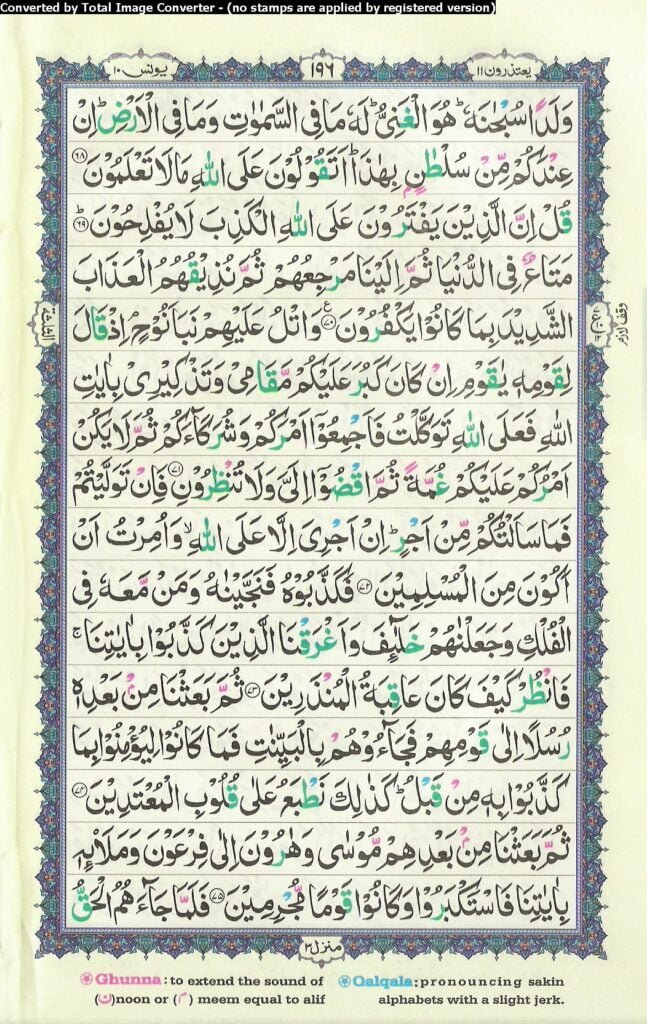 Converted by Total Image Converter - (no stamps are applied by registered version)
یعتذرون ۱۱
۱۹۶
یونس ۱۰
وَلَدًا سُبْحٰنَهٗ ؕ هُوَ الْغَنِیُّ ؕ لَهٗ مَا فِی السَّمٰوٰتِ وَمَا فِی الْاَرْضِ ؕ اِنْ
عِنْدَكُمْ مِّنْ سُلْطٰنٍۭ بِهٰذَا ؕ اَتَقُوْلُوْنَ عَلَی اللّٰهِ مَا لَا تَعْلَمُوْنَ ﴿۶۸﴾
قُلْ اِنَّ الَّذِیْنَ یَفْتَرُوْنَ عَلَی اللّٰهِ الْكَذِبَ لَا یُفْلِحُوْنَ ؕ﴿۶۹﴾
مَتَاعٌ فِی الدُّنْیَا ثُمَّ اِلَیْنَا مَرْجِعُهُمْ ثُمَّ نُذِیْقُهُمُ الْعَذَابَ
الشَّدِیْدَ بِمَا كَانُوْا یَكْفُرُوْنَ ﴿۷۰﴾ وَاتْلُ عَلَیْهِمْ نَبَاَ نُوْحٍ ۘ اِذْ قَالَ
لِقَوْمِهٖ یٰقَوْمِ اِنْ كَانَ كَبُرَ عَلَیْكُمْ مَّقَامِیْ وَتَذْكِیْرِیْ بِاٰیٰتِ
اللّٰهِ فَعَلَی اللّٰهِ تَوَكَّلْتُ فَاَجْمِعُوْۤا اَمْرَكُمْ وَشُرَكَآءَكُمْ ثُمَّ لَا یَكُنْ
اَمْرُكُمْ عَلَیْكُمْ غُمَّةً ثُمَّ اقْضُوْۤا اِلَیَّ وَلَا تُنْظِرُوْنِ ﴿۷۱﴾ فَاِنْ تَوَلَّیْتُمْ
فَمَا سَاَلْتُكُمْ مِّنْ اَجْرٍ ؕ اِنْ اَجْرِیَ اِلَّا عَلَی اللّٰهِ ۙ وَاُمِرْتُ اَنْ
اَكُوْنَ مِنَ الْمُسْلِمِیْنَ ﴿۷۲﴾ فَكَذَّبُوْهُ فَنَجَّیْنٰهُ وَمَنْ مَّعَهٗ فِی
الْفُلْكِ وَجَعَلْنٰهُمْ خَلٰٓئِفَ وَاَغْرَقْنَا الَّذِیْنَ كَذَّبُوْا بِاٰیٰتِنَا ۚ
فَانْظُرْ كَیْفَ كَانَ عَاقِبَةُ الْمُنْذَرِیْنَ ﴿۷۳﴾ ثُمَّ بَعَثْنَا مِنْۢ بَعْدِهٖ
رُسُلًا اِلٰی قَوْمِهِمْ فَجَآءُوْهُمْ بِالْبَیِّنٰتِ فَمَا كَانُوْا لِیُؤْمِنُوْا بِمَا
كَذَّبُوْا بِهٖ مِنْ قَبْلُ ؕ كَذٰلِكَ نَطْبَعُ عَلٰی قُلُوْبِ الْمُعْتَدِیْنَ ﴿۷۴﴾
ثُمَّ بَعَثْنَا مِنْۢ بَعْدِهِمْ مُّوْسٰی وَهٰرُوْنَ اِلٰی فِرْعَوْنَ وَمَلَا۟ئِهٖ
بِاٰیٰتِنَا فَاسْتَكْبَرُوْا وَكَانُوْا قَوْمًا مُّجْرِمِیْنَ ﴿۷۵﴾ فَلَمَّا جَآءَهُمُ الْحَقُّ
وقف لازم
الثلٰثة
منزل ۳
Ghunna: to extend the sound of
(ن) noon or (م) meem equal to alif
Qalqala: pronouncing sakin
alphabets with a slight jerk.